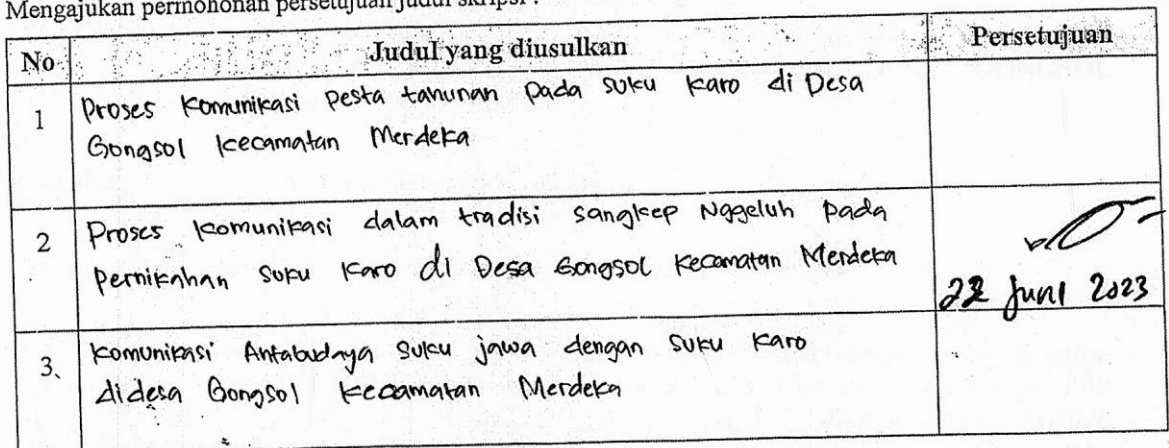 Mengajukan permohonan persetujuan judul skripsi :
No Judul yang diusulkan Persetujuan
1 Proses Komunikasi pesta tahunan pada suku karo di Desa
Gongsol kecamatan Merdeka
2 Proses komunikasi dalam tradisi sangkep Nggeluh pada
pernikahan suku karo di Desa Gongsol kecamatan Merdeka
22 Juni 2023
3. komunikasi Antabudaya suku jawa dengan suku karo
didesa Gongsol kecamatan Merdeka